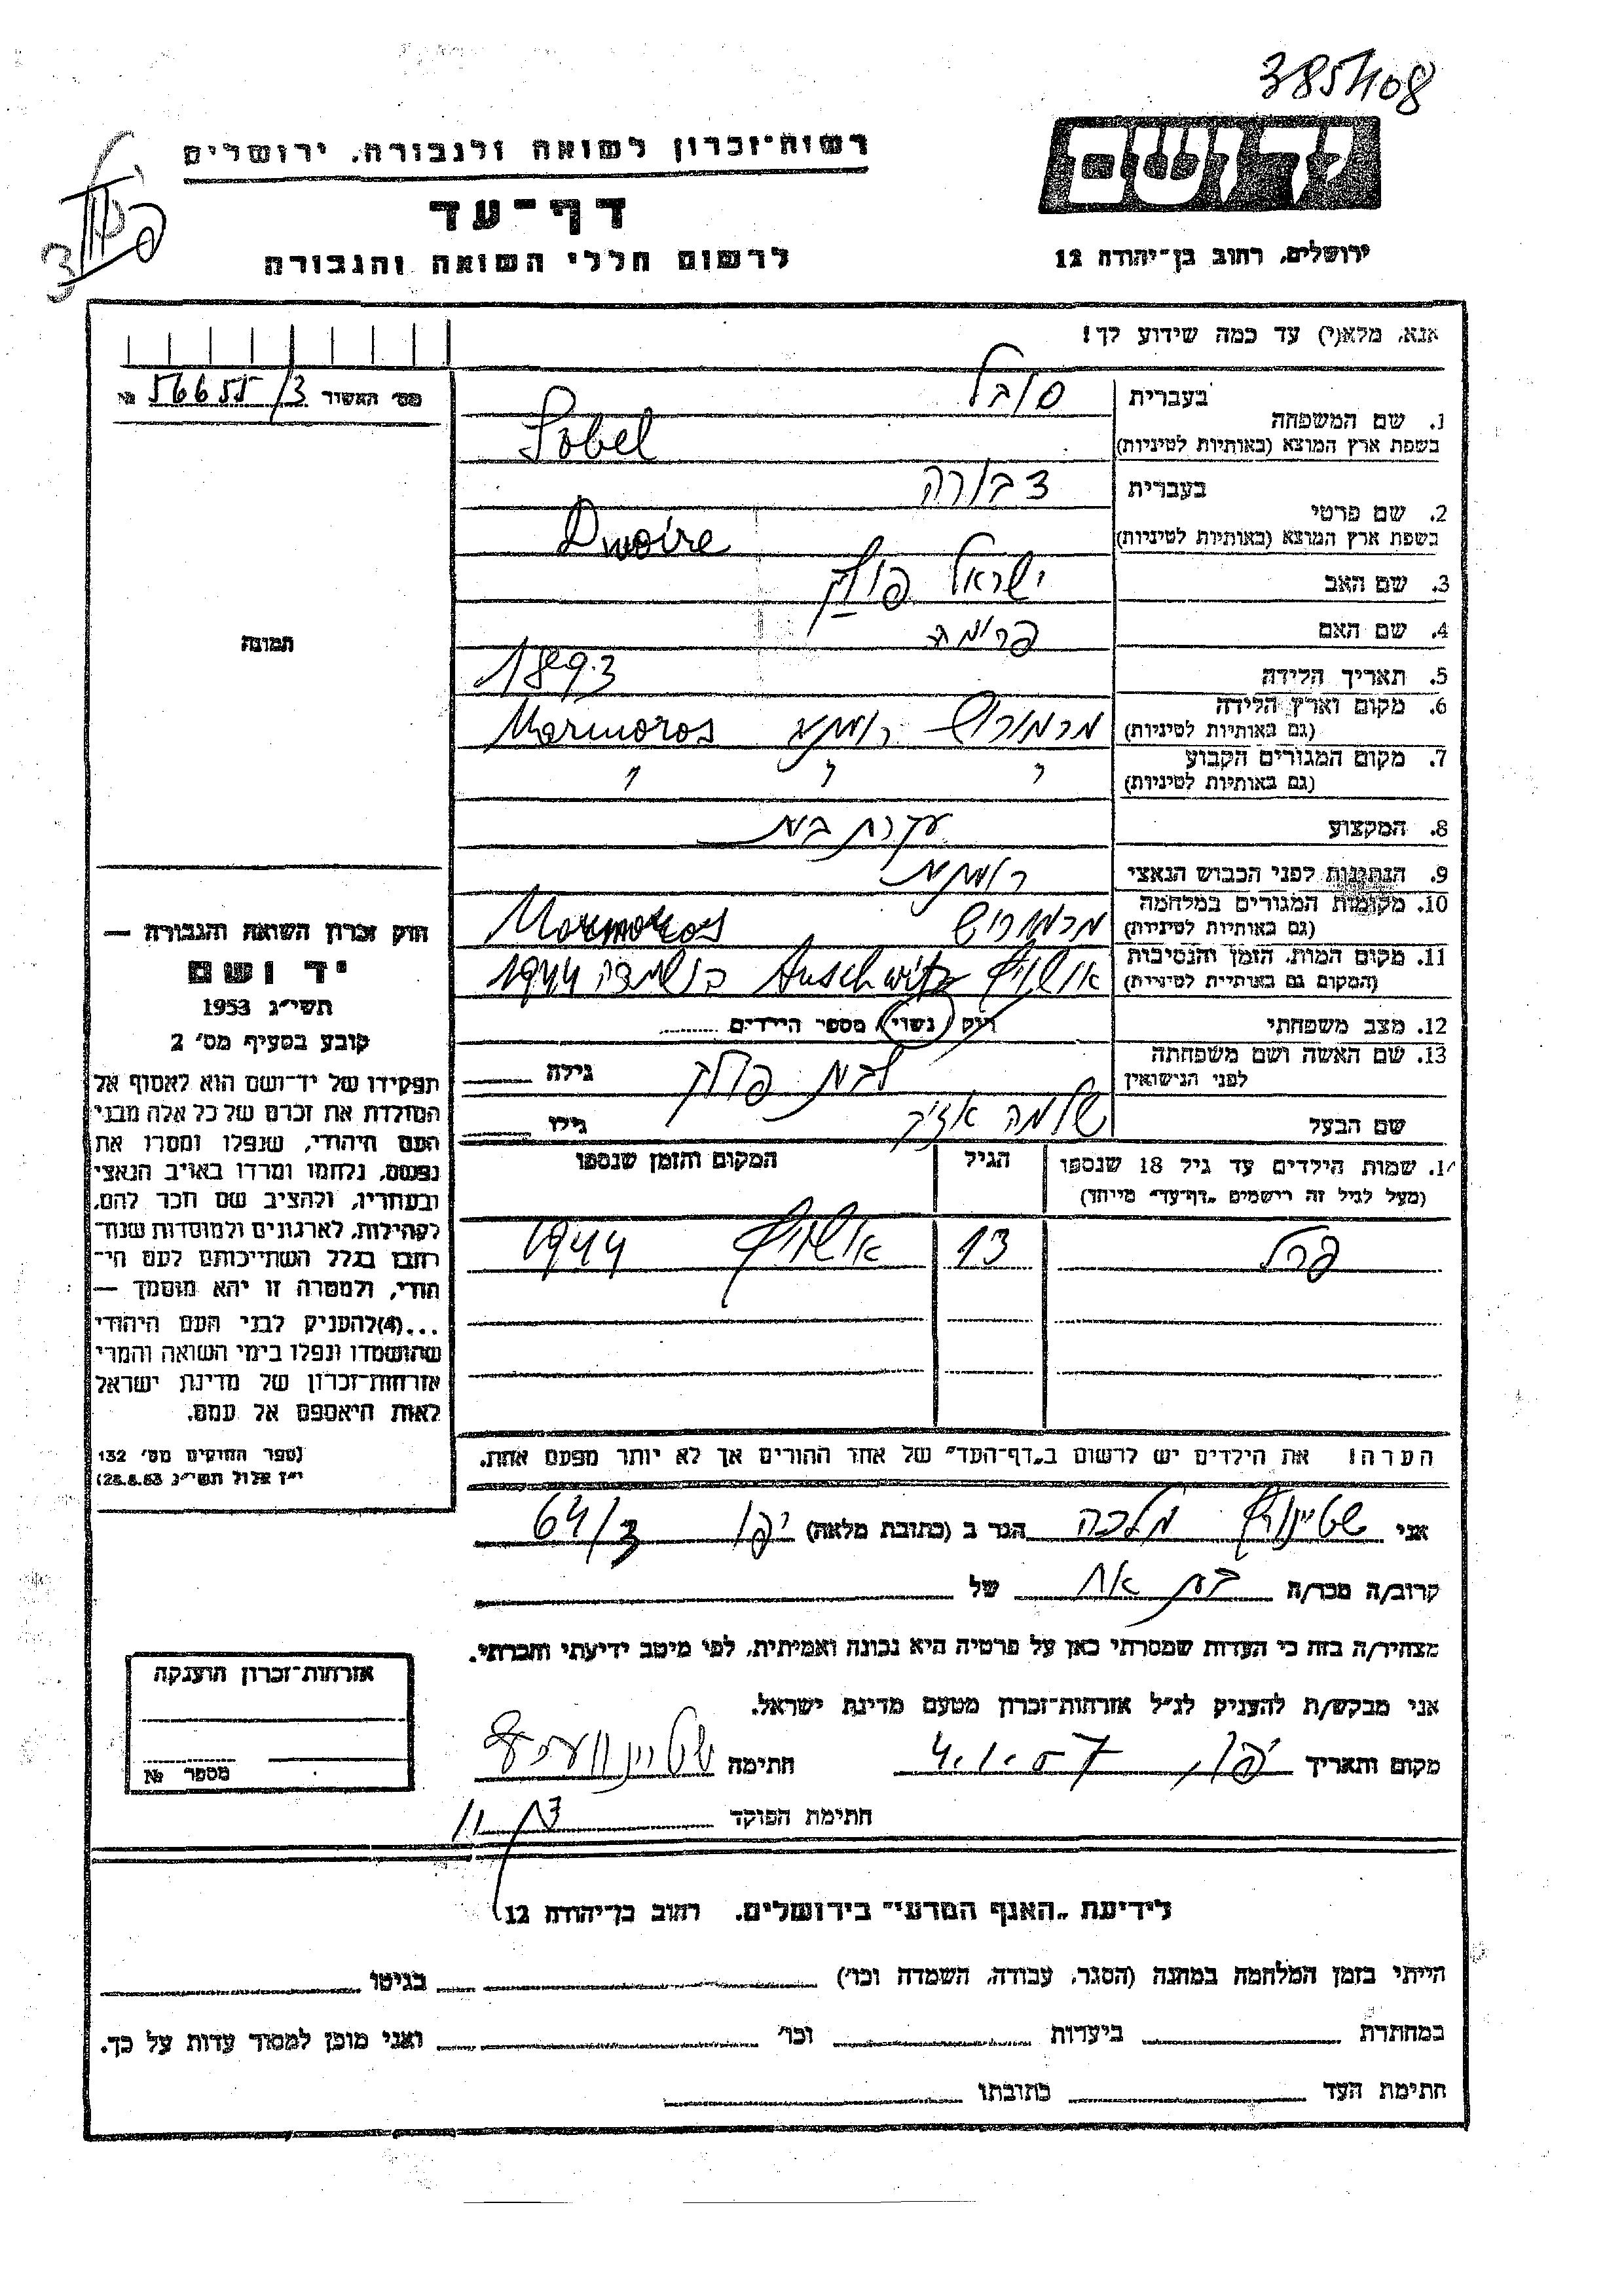 385408
רשות־זכרון לשואה ולגבורה, ירושלים
יד ושם
דף־עד
לרשום חללי השואה והגבורה
ירושלים, רחוב בן־יהודה 12
אנא, מלא(י) עד כמה שידוע לך!
מס׳ האשור 56655/3 №
1. שם המשפחה בעברית סובל
בשפת ארץ המוצא (באותיות לטיניות) Sobel
2. שם פרטי בעברית דבורה
בשפת ארץ המוצא (באותיות לטיניות) Dwoire
3. שם האב ישראל פולק
4. שם האם
5. תאריך הלידה 1893
6. מקום וארץ הלידה מרמורוש רומניה Marmoros
(גם באותיות לטיניות)
7. מקום המגורים הקבוע " " "
(גם באותיות לטיניות)
8. המקצוע עקרת בית
9. הנתינות לפני הכבוש הנאצי רומניה
10. מקומות המגורים במלחמה מרמורוש Marmoros
(גם באותיות לטיניות)
11. מקום המות, הזמן והנסיבות אושויץ Auschwitz בהשמדה 1944
(המקום גם באותיות לטיניות)
12. מצב משפחתי רווק / נשוי / מספר הילדים
13. שם האשה ושם משפחתה לבית פולק גילה
לפני הנישואין
שם הבעל שלמה אייזיק גילו
14. שמות הילדים עד גיל 18 שנספו הגיל המקום והזמן שנספו
(מעל לגיל זה רישמים „דף־עד" מייחד)
פרל 13 אושויץ 1944
הערה! את הילדים יש לרשום ב„דף־העד" של אחד ההורים אך לא יותר מפעם אחת.
תמונה
חוק זכרון השואה והגבורה —
יד ושם
תשי״ג 1953
קובע בסעיף מס׳ 2
תפקידו של יד־ושם הוא לאסוף אל
המולדת את זכרם של כל אלה מבני
העם היהודי, שנפלו ומסרו את
נפשם, נלחמו ומרדו באויב הנאצי
ובעוזריו, ולהציב שם וזכר להם,
לקהילות, לארגונים ולמוסדות שנח־
רבו בגלל השתייכותם לעם הי־
הודי, ולמטרה זו יהא מוסמך —
...(4) להעניק לבני העם היהודי
שהושמדו ונפלו בימי השואה והמרי
אזרחות־זכרון של מדינת ישראל
לאות היאספם אל עמם.
(ספר החוקים מס׳ 132
י״ז אלול תשי״ג 28.8.53)
אני שטיינוויץ מלכה הגר ב (כתובת מלאה) יפו 64/3
קרוב/ה מכר/ה בת אח של
מצהיר/ה בזה כי העדות שמסרתי כאן על פרטיה היא נכונה ואמיתית, לפי מיטב ידיעתי והכרתי.
אני מבקש/ת להעניק לנ״ל אזרחות־זכרון מטעם מדינת ישראל.
מקום ותאריך יפו, 4.1.57 חתימה
חתימת הפוקד
אזרחות־זכרון הוענקה
מספר №
לידיעת „האגף המדעי" בירושלים, רחוב בן־יהודה 12
הייתי בזמן המלחמה במחנה (הסגר, עבודה, השמדה וכו׳) בגיטו
במחתרת ביערות וכו׳ ואני מוכן למסור עדות על כך.
חתימת העד כתובתו